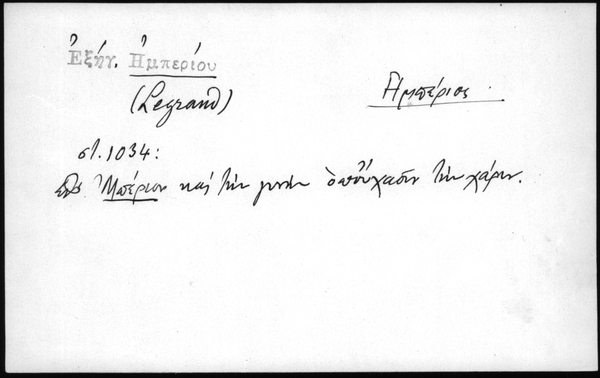 Ἐξήγ. Ἠμπερίου
(Legrand)
Ἠμπέριος.
στ. 1034:
Ἠμπέριον καὶ τὴν ὁποὔχασιν τὴν χάριν.